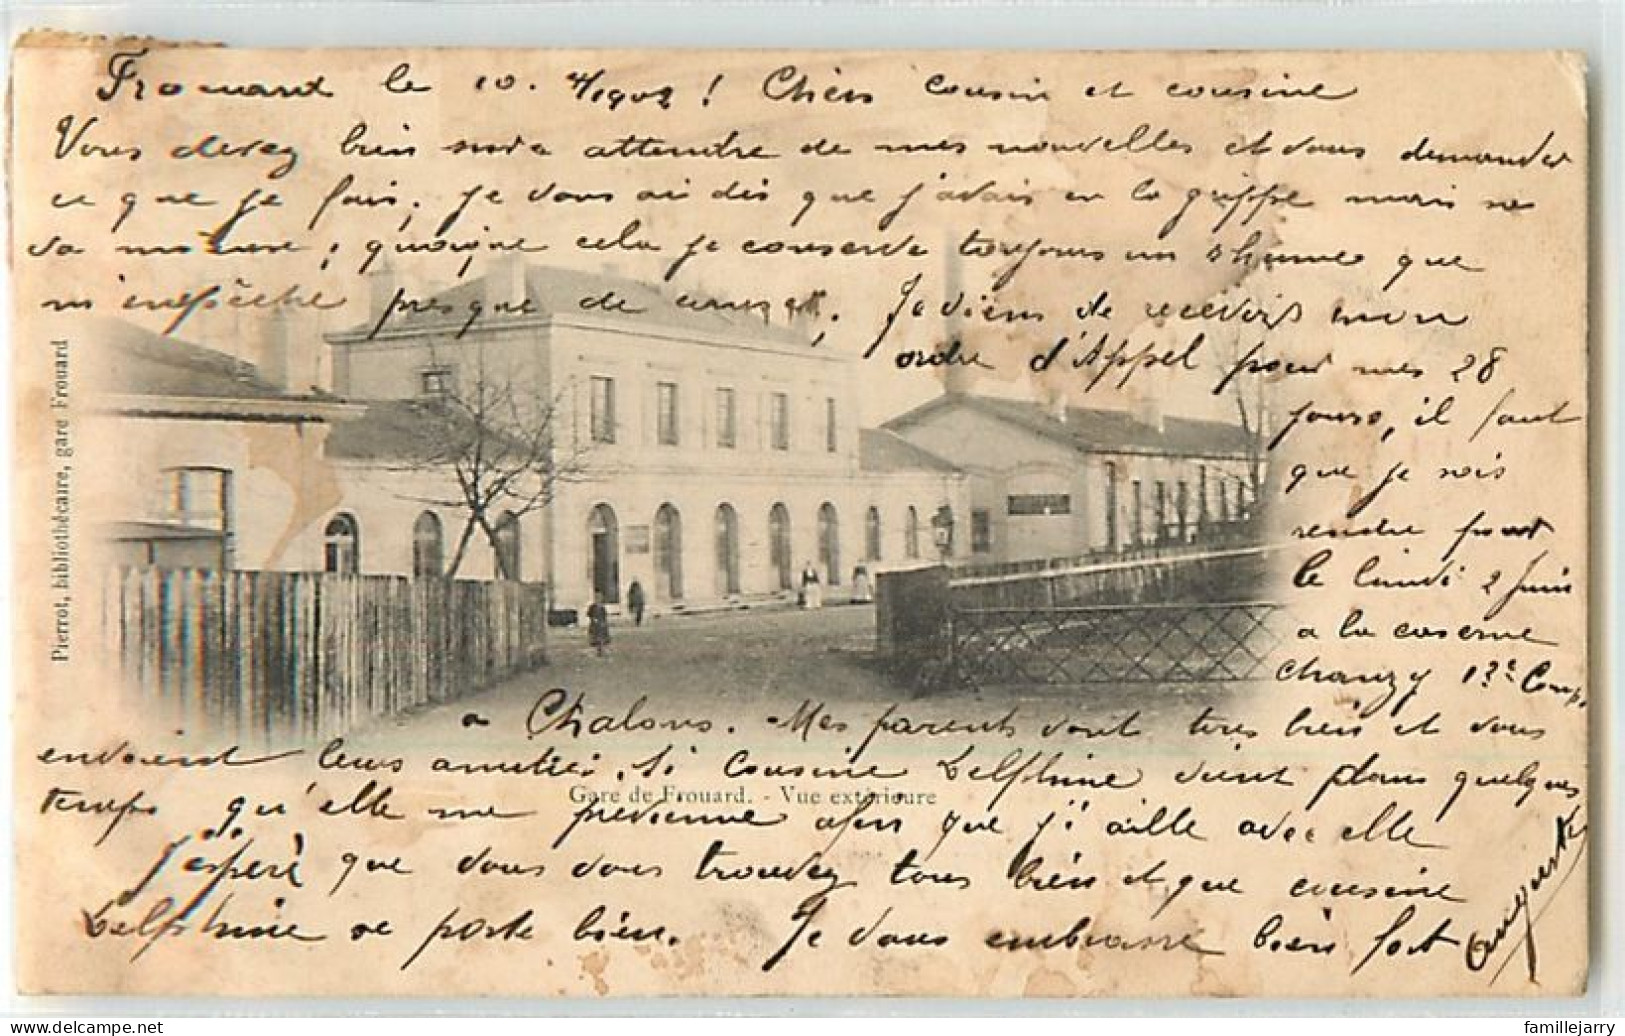 Frouard le 10. 4/1902 ! Chers cousin et cousine
Vous devez bien attendre de mes nouvelles et vous demander
ce que je fais, je vous ai dis que j'avais eu la grippe mais sa
va mieux ; quoique cela je conserve toujours un rhume que
m'empêche presque de Je viens de recevoir mon
ordre d'Appel pour mes 28
jours, il faut
que je sois
rendu pour
le lundi 2 Juin
a la caserne
chanzy 1re Comp.
a Chalons. Mes parents vont tous bien et vous
envoient leurs amitiés. Si cousine Delphine vient dans quelques
temps qu'elle me prévienne afin que j'i aille avec elle
J'espère que vous vous trouvez tous bien et que cousine
Delphine se porte bien. Je vous embrasse bien fort
Auguste
Pierrot, bibliothécaire, gare Frouard
Gare de Frouard. - Vue extérieure
www.delcampe.net
famillejarry